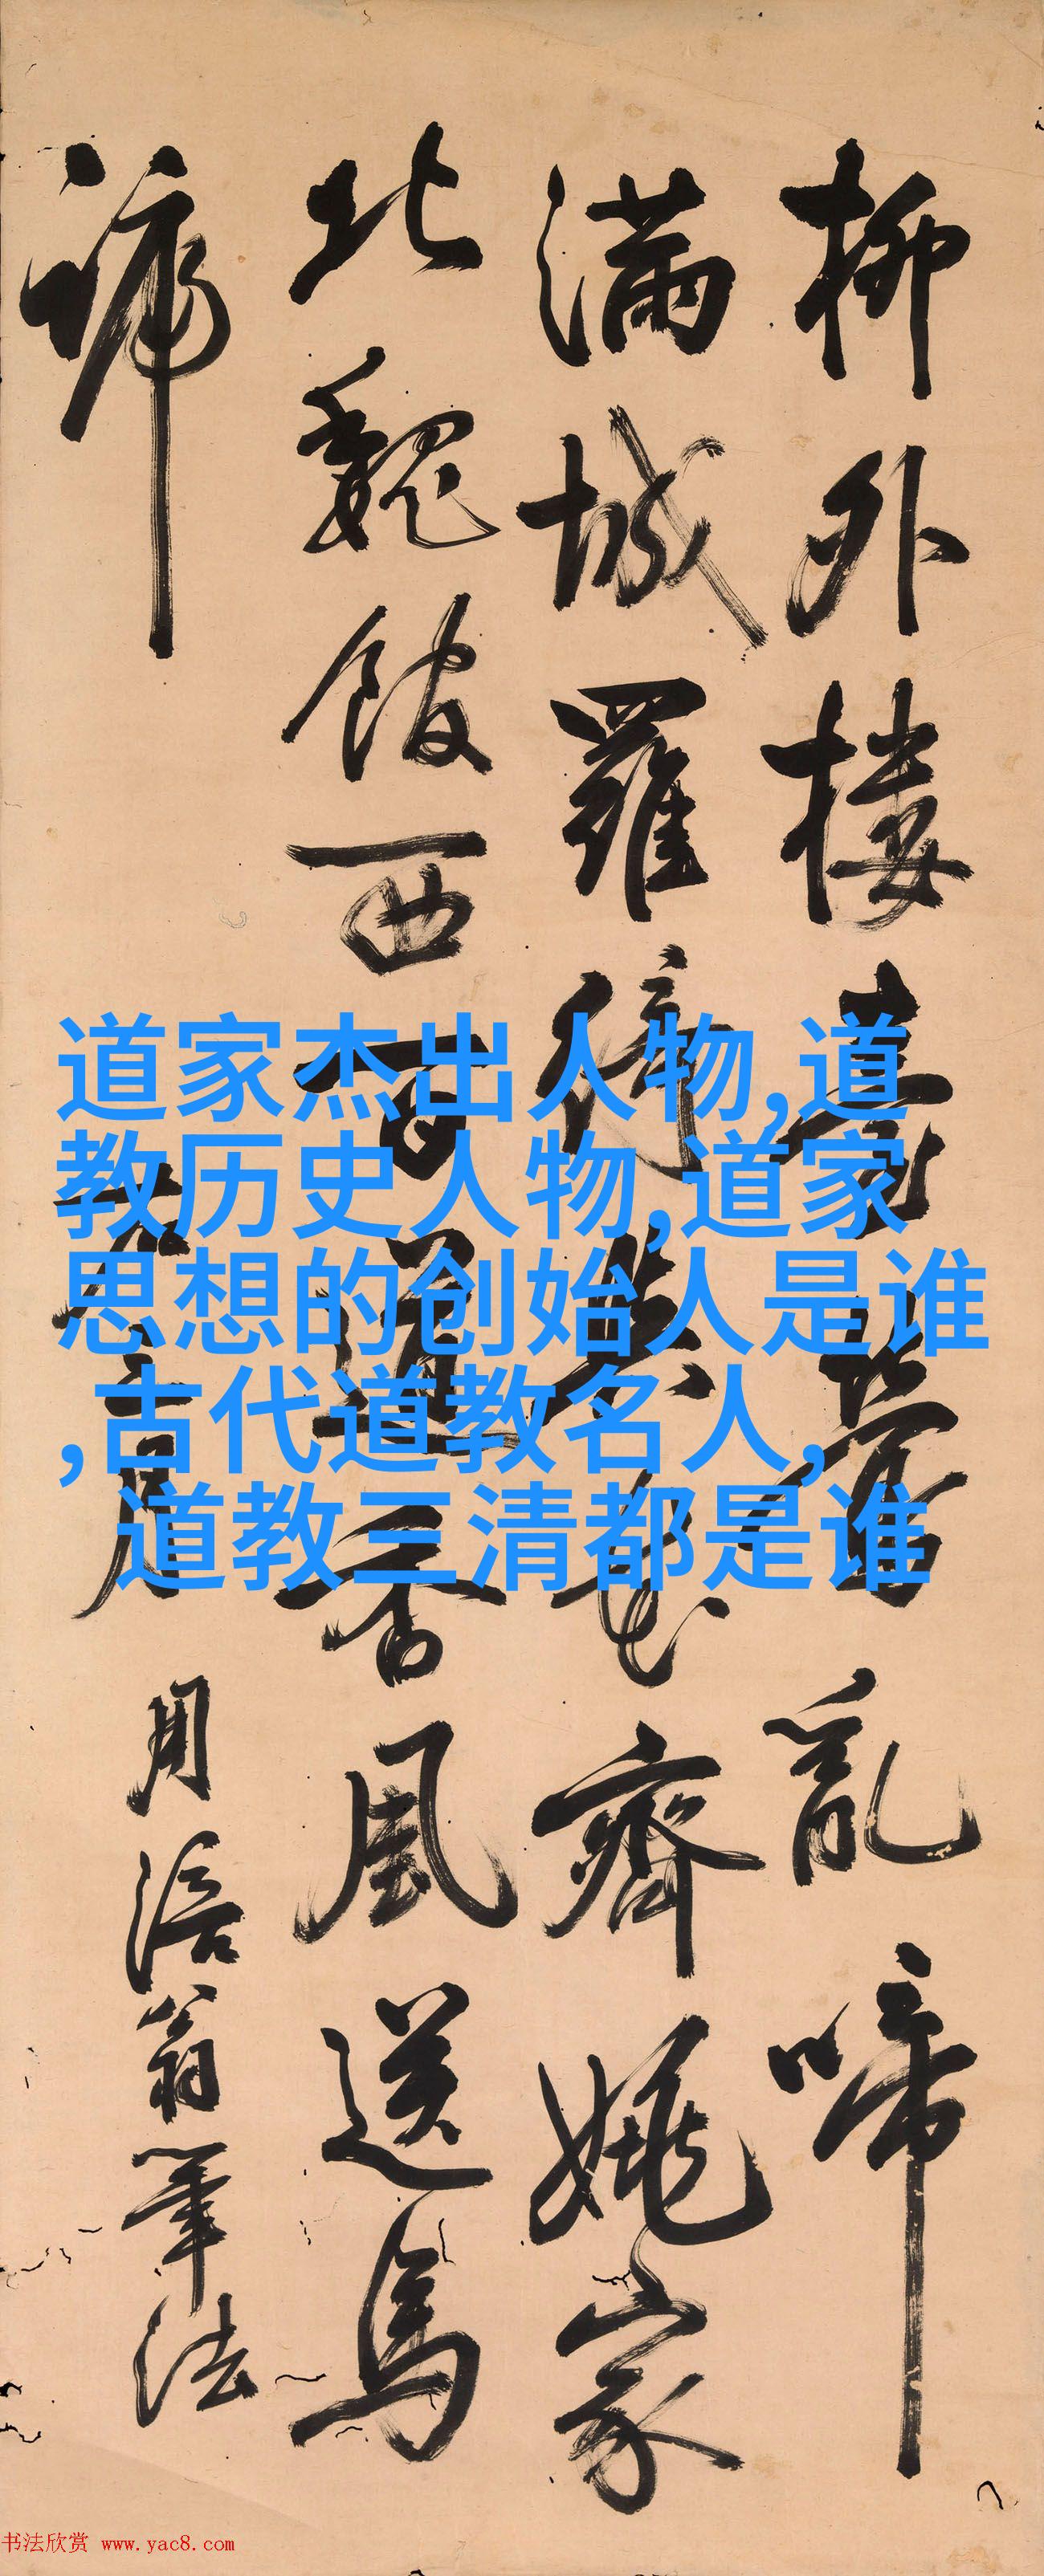 柳外樓臺鶯亂啼
滿城羅綺花齊姚家
北魏西香風送馬
蹄
用涪翁筆法
道家杰出人物,道
教历史人物,道家
思想的创始人是谁
,古代道教名人,
道教三清都是谁
书法欣赏 www.yac8.com